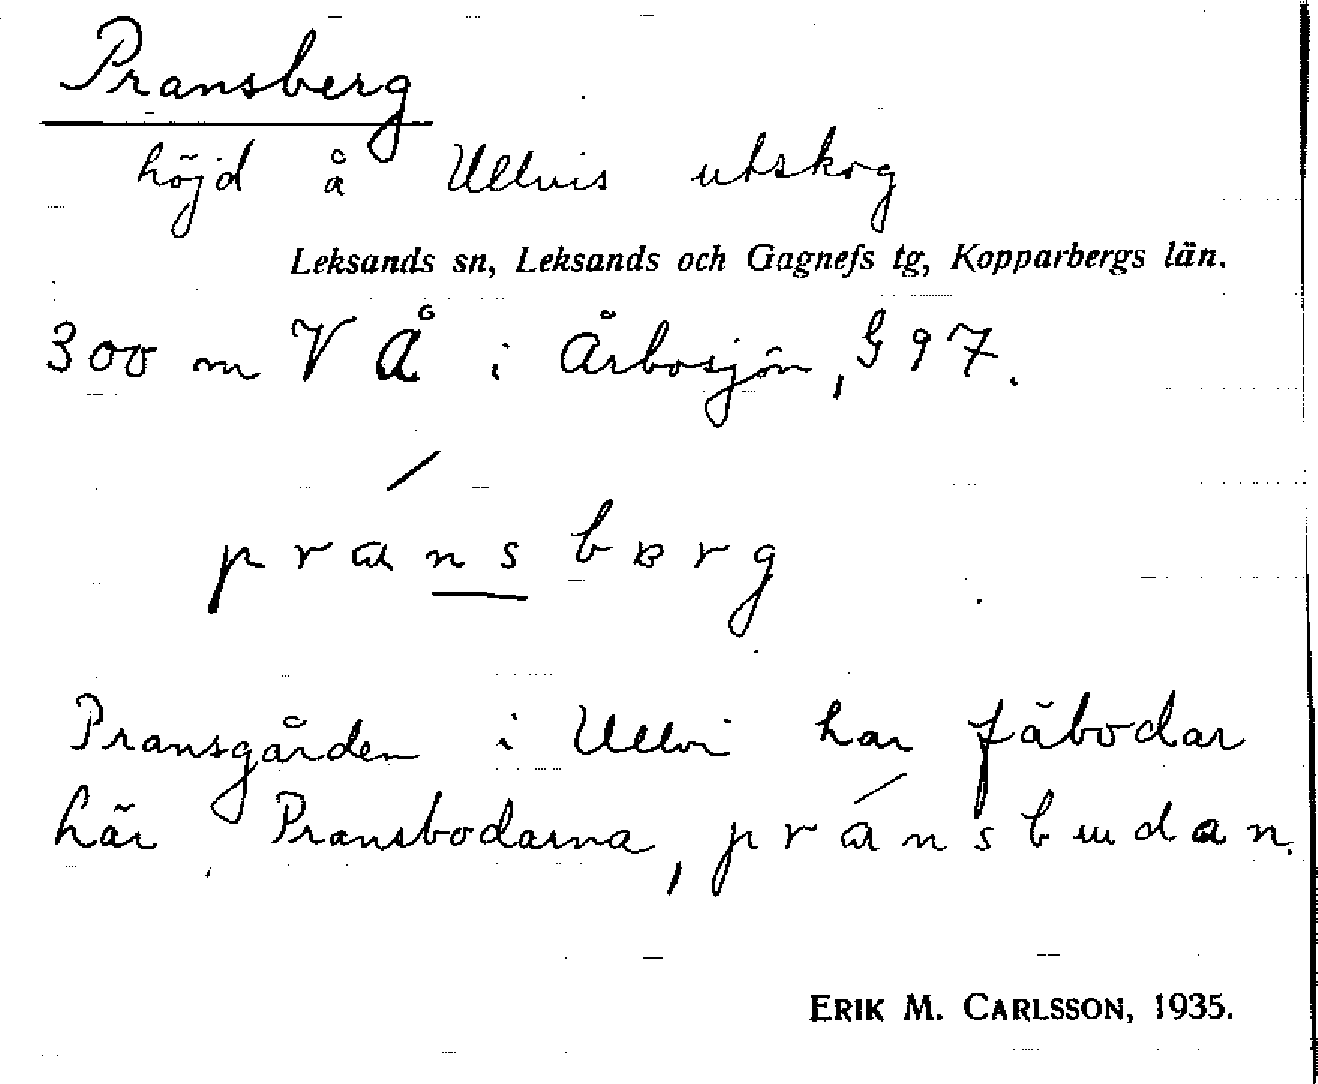 Pransberg
höjd å Ullvis utskog
Leksands sn, Leksands och Gagnefs tg, Kopparbergs län.
300 m V Å i Årbosjön, G 97.
pránsbærg
Pransgården i Ullvi har fäbodar
här, Pransbodarna, pránsbudan.
ERIK M. CARLSSON, 1935.